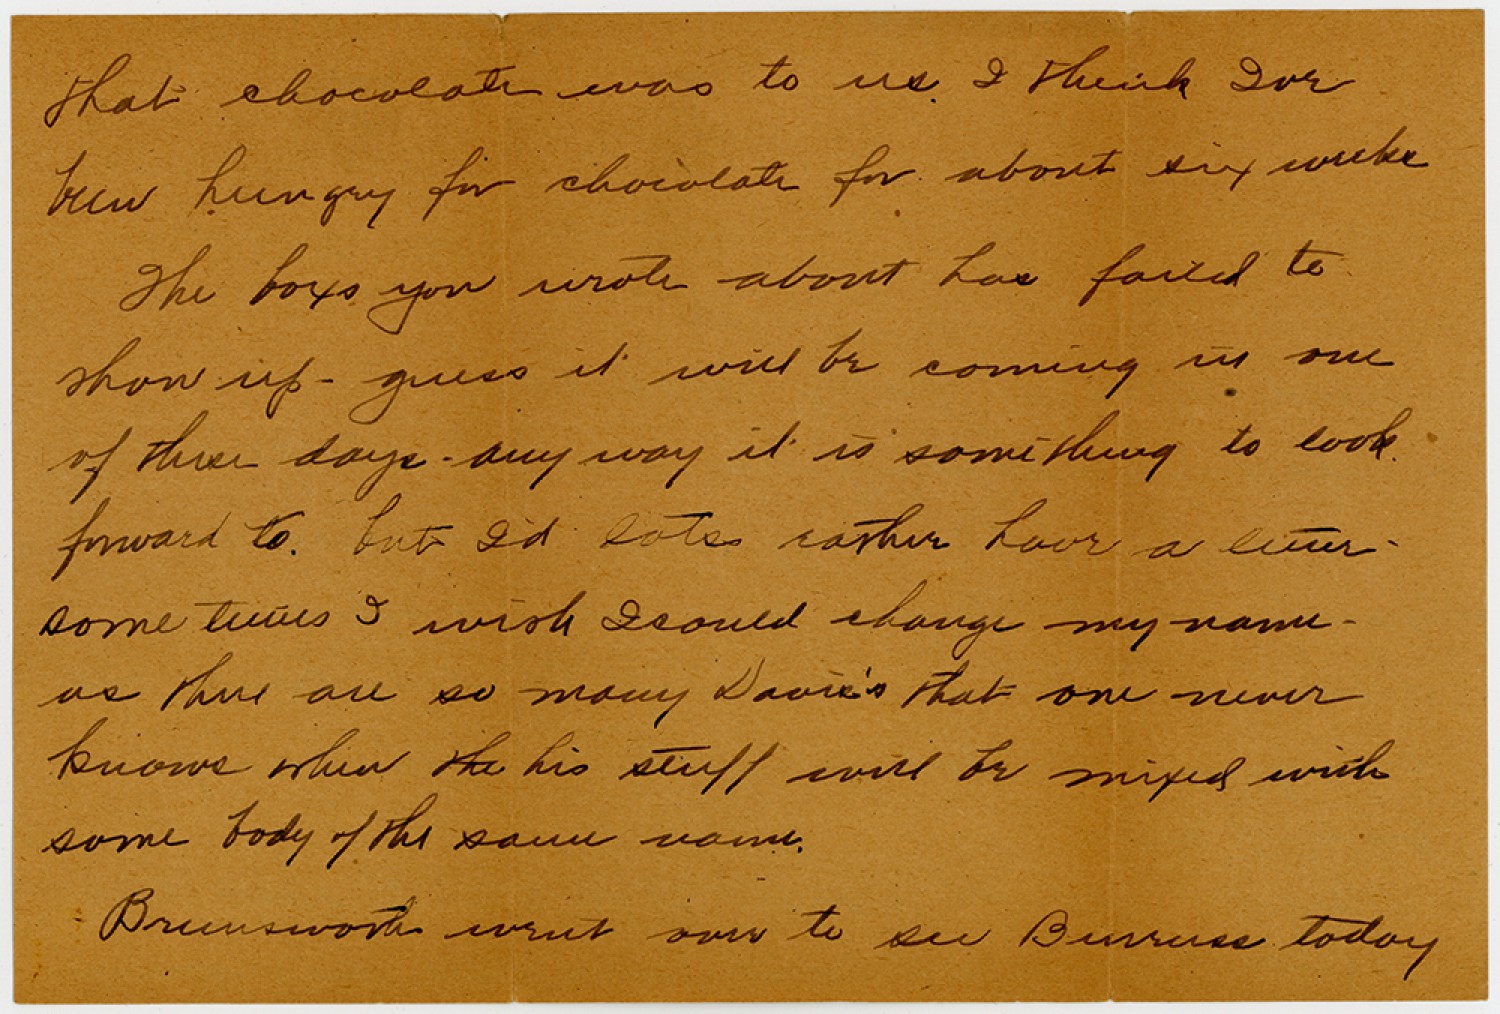 that chocolate was to us. I think Ive
been hungry for chocolate for about six weeks
The boxs you wrote about has failed to
show up - guess it will be coming in one
of these days - any way it is something to look
forward to. but I'd lots rather have a letter -
some times I wish I could change my name -
as there are so many Davis's that one never
knows when the his stuff will be mixed with
some body of the same name.
Brunsworth went over to see Burruss today